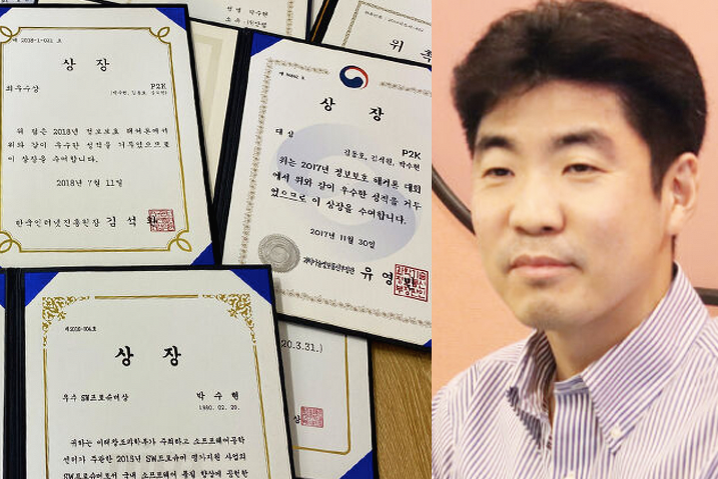 제 2018-1-031 호
상 장
최우수상
P2K
위 팀은 2018년 정보보호 해커톤에서
위와 같이 우수한 성적을 거두었으므로
이 상장을 수여합니다.
2018년 7월 11일
한국인터넷진흥원장 김석환
위 촉
상 장
대상
P2K
김동호, 김석원, 박수현
위는 2017년 정보보호 해커톤 대회
에서 위와 같이 우수한 성적을 거두
었으므로 이 상장을 수여합니다.
2017년 11월 30일
과학기술정보통신부장관 유 영
20.3.31.)
상
상 장
우수 SW프로슈머상
박 수 현
귀하는 미래창조과학부가 주최하고 소프트웨어공학
센터가 주관한 2015년 SW프로슈머 평가지원 사업의
SW프로슈머로서 국내 소프트웨어 품질 향상에 공헌한